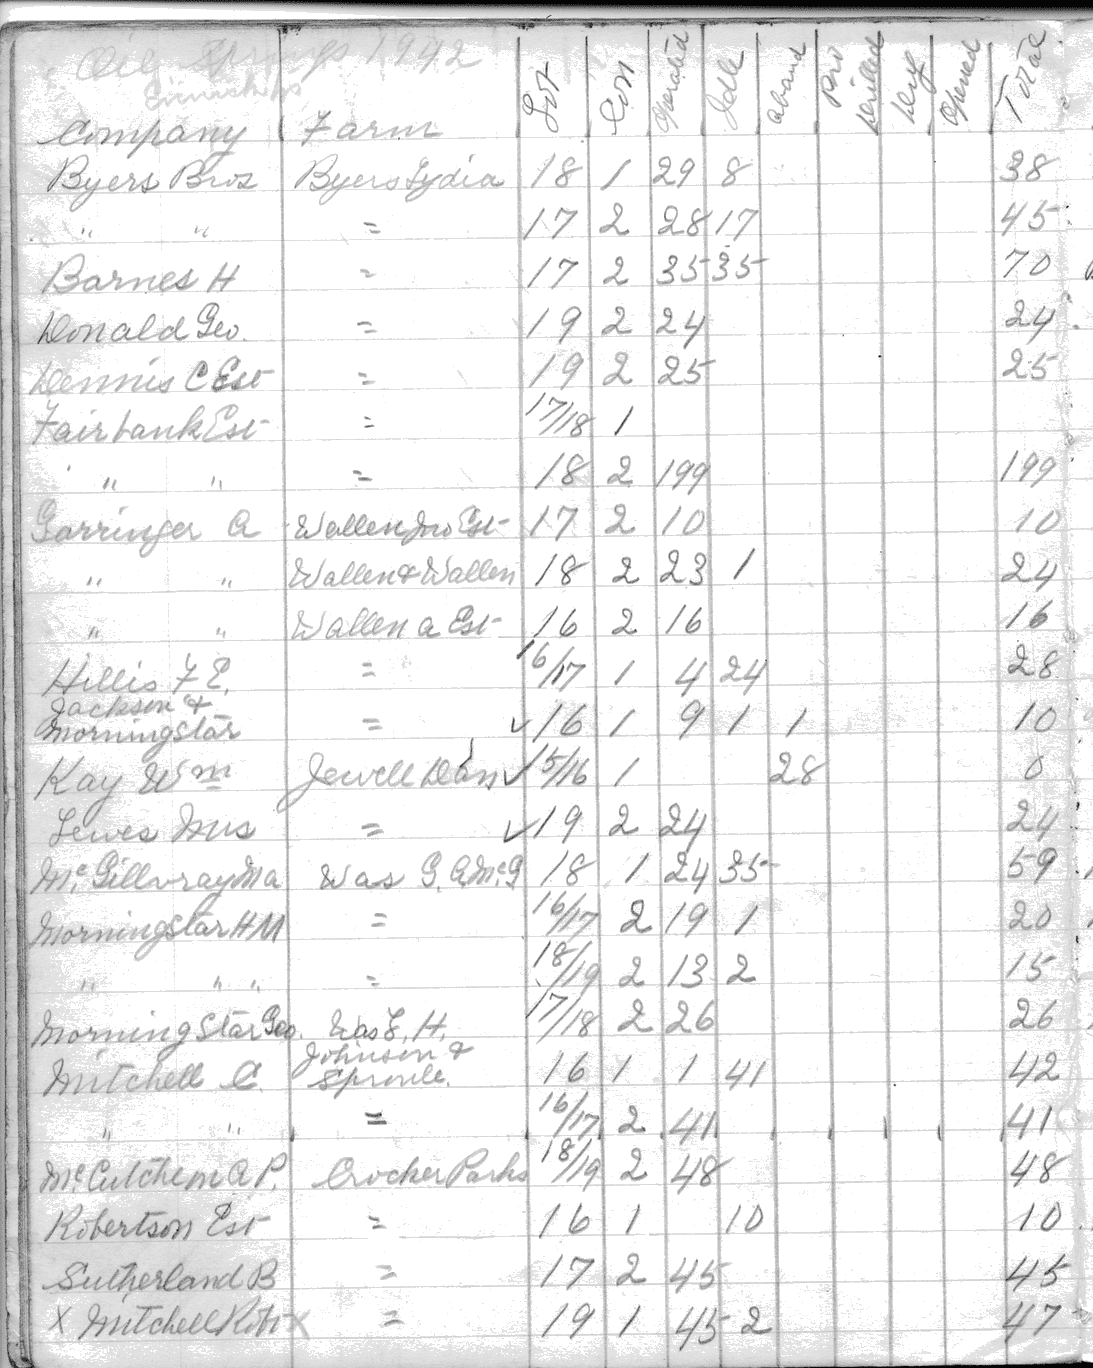 Oil Springs 1942
Company Farm Lot Con Operated Idle Aband Pro Drilled Dry Opened Total
Byers Bros Byers Lydia 18 1 29 8 38
" " = 17 2 28 17 45
Barnes H = 17 2 35 35 70
Donald Geo. = 19 2 24 24
Dennis C Est = 19 2 25 25
Fairbank Est = 17/18 1
" " = 18 2 199 199
Garringer A Wallen Jno Est 17 2 10 10
" " Wallen & Wallen 18 2 23 1 24
" " Wallen A Est 16 2 16 16
Hillis F E. = 16/17 1 4 24 28
Jackson &
Morningstar = ✓ 16 1 9 1 1 10
Kay Wm Jewell Dan ✓ 15/16 1 28 0
Lewes Mrs = ✓ 19 2 24 24
Mc.Gillvray Ma Was G. A. Mc.G 18 1 24 35 59
Morningstar H M = 16/17 2 19 1 20
" " " = 18/19 2 13 2 15
Morningstar Geo. Was L. H. 17/18 2 26 26
Johnson &
Mitchell C. Sproule. 16 1 1 41 42
" " = 16/17 2 41 41
Mc.Cutchem A P. Crocker Parks 18/19 2 48 48
Robertson Est = 16 1 10 10
Sutherland B = 17 2 45 45
X Mitchell Robt X = 19 1 45 2 47